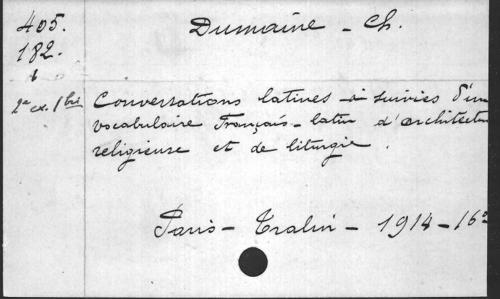 405. Dumaine - Ch.
182.
b
2e ex. 1bis Conversations latines - suivies d'un
vocabulaire Français - latin d'architectu
religieuse et de liturgie.
Paris - Tralin - 1914 - 16°